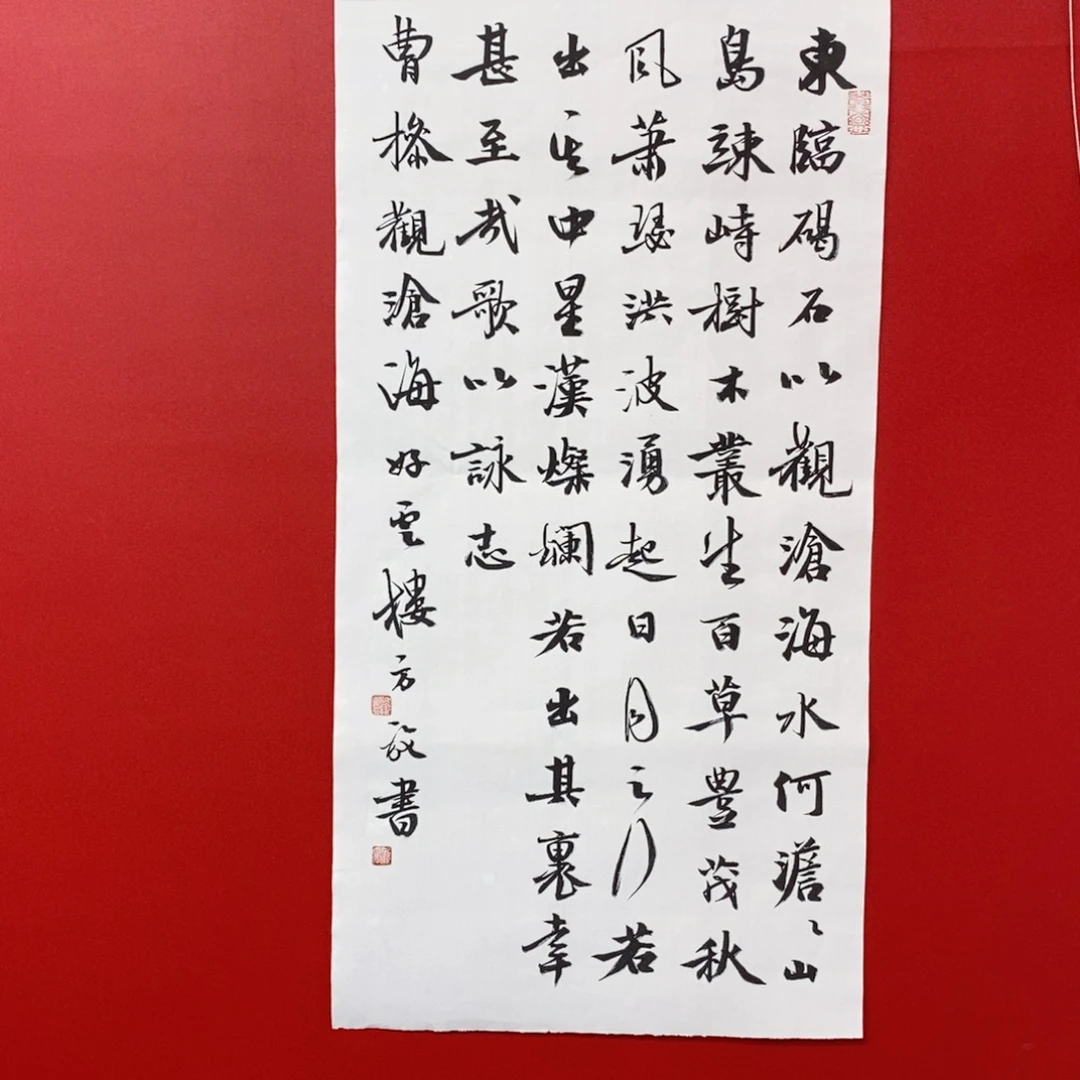 東臨碣石以觀滄海水何澹〻山
島竦峙樹木叢生百草豐茂秋
風蕭瑟洪波湧起日月之行若
出其中星漢燦爛若出其裏幸
甚至哉歌以詠志
曹操觀滄海好雲樓方書